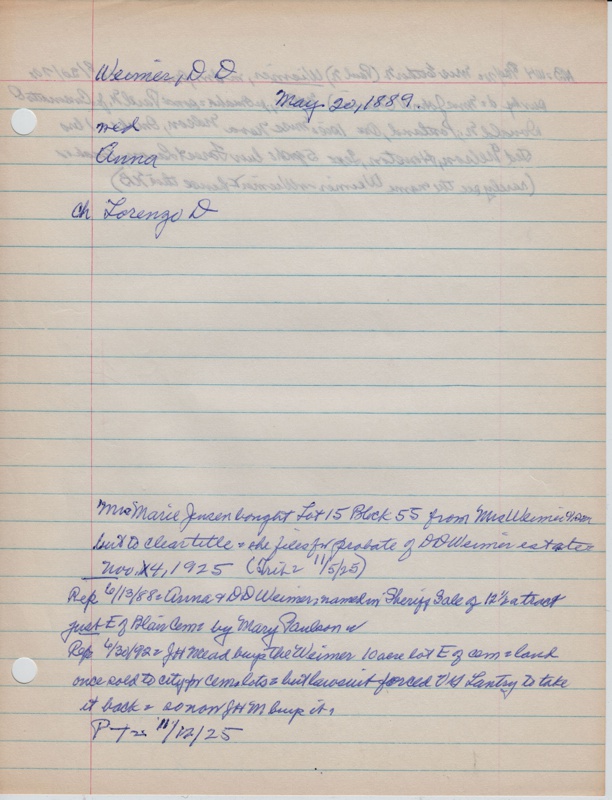 Weimer, D. D.
May 20, 1889.
med
Anna
ch Lorenzo D
Mrs Marie Jensen bought Lot 15 Block 55 from Mrs Weimer
but to clear title = she files for probate of D D Weimer estate =
Nov. 4, 1925 (Trib = 11/5/25)
Rep 6/13/88 = Anna & D D Weimer, named in Sheriff Sale of 12½ a tract
just E of Blair Cem = by Mary Paulson
Rep 6/30/92 = J H Mead buys the Weimer 10 acre lot E of cem = land
once sold to city for cem lots = but lawsuit forced V G Lantry to take
it back = so now J H M buys it.
P T = 11/12/25